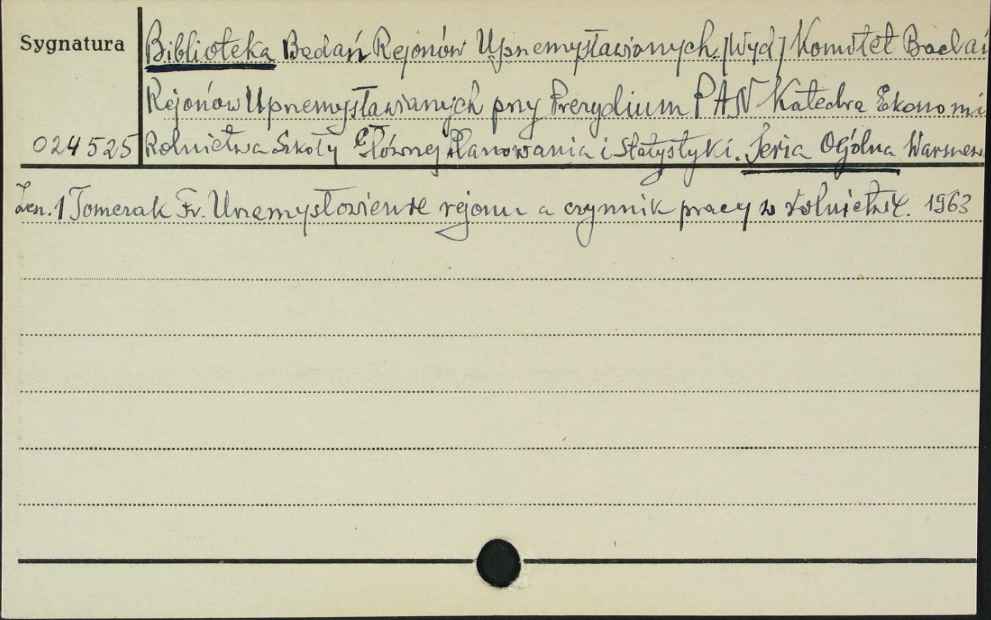 Sygnatura
Biblioteka Badań Rejonów Uprzemysławianych. [Wyd] Komitet Badań
Rejonów Uprzemysławianych przy Prezydium PAN Katedra Ekonomi
024525 Rolnictwa Szkoły Głównej Planowania i Statystyki. Seria Ogólna Warszaw
Zesz. 1 Tomczak Fr. Uprzemysłowienie rejonu a czynnik pracy w rolnictwie. 1963